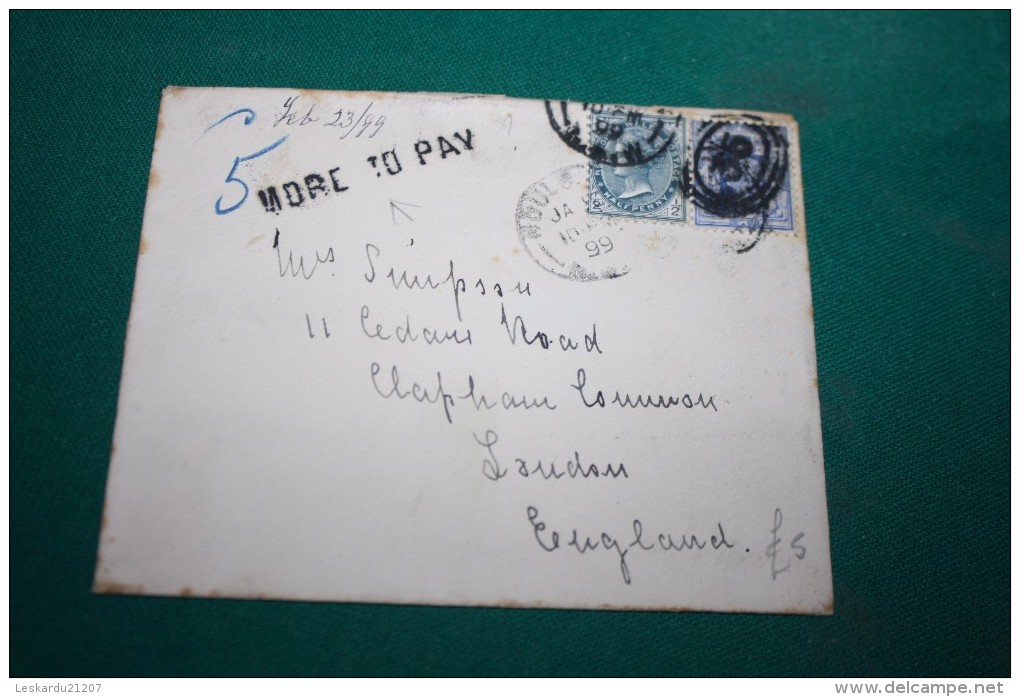 Feb 23/99
5
MORE TO PAY
HALFPENNY
JA
99
Mrs Simpson
11 Cedars Road
Clapham Common
London
England.
£5
Leskardu21207
www.delcampe.net